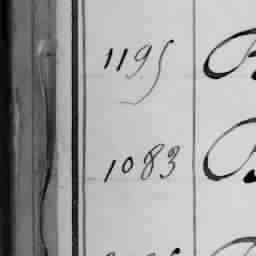 1195 B
1083 B